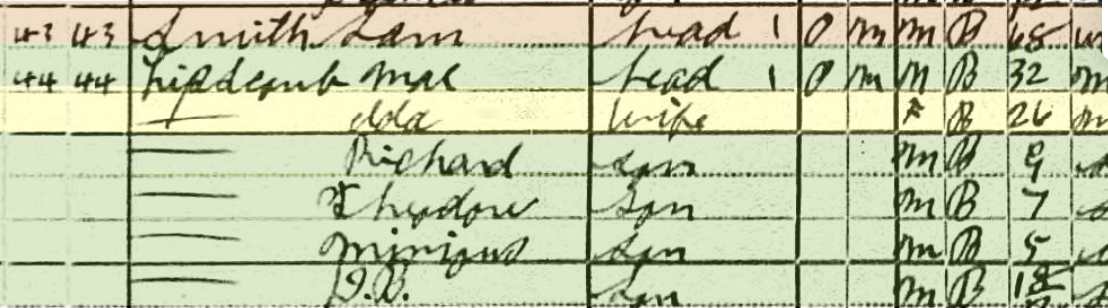 43 43 Smith Sam head 1 O M M B 68
44 44 Lipscomb Mac head 1 O M M B 32 M
— Ida wife F B 26 M
— Richard son M B 9
— Theodore son M B 7
— son M B 5
— J.B. son M B